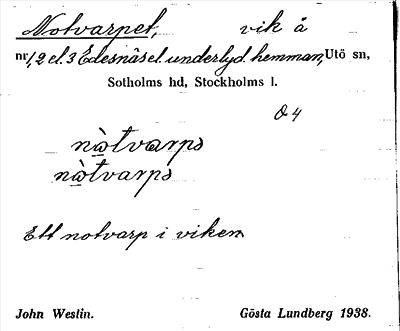 Notvarpet, vik å
nr 1, 2 el. 3 Edesnäs el. underlyd. hemman, Utö sn,
Sotholms hd, Stockholms l.
Ö 4
nòtvarps
nòtvarps
Ett notvarp i viken
John Westin. Gösta Lundberg 1938.